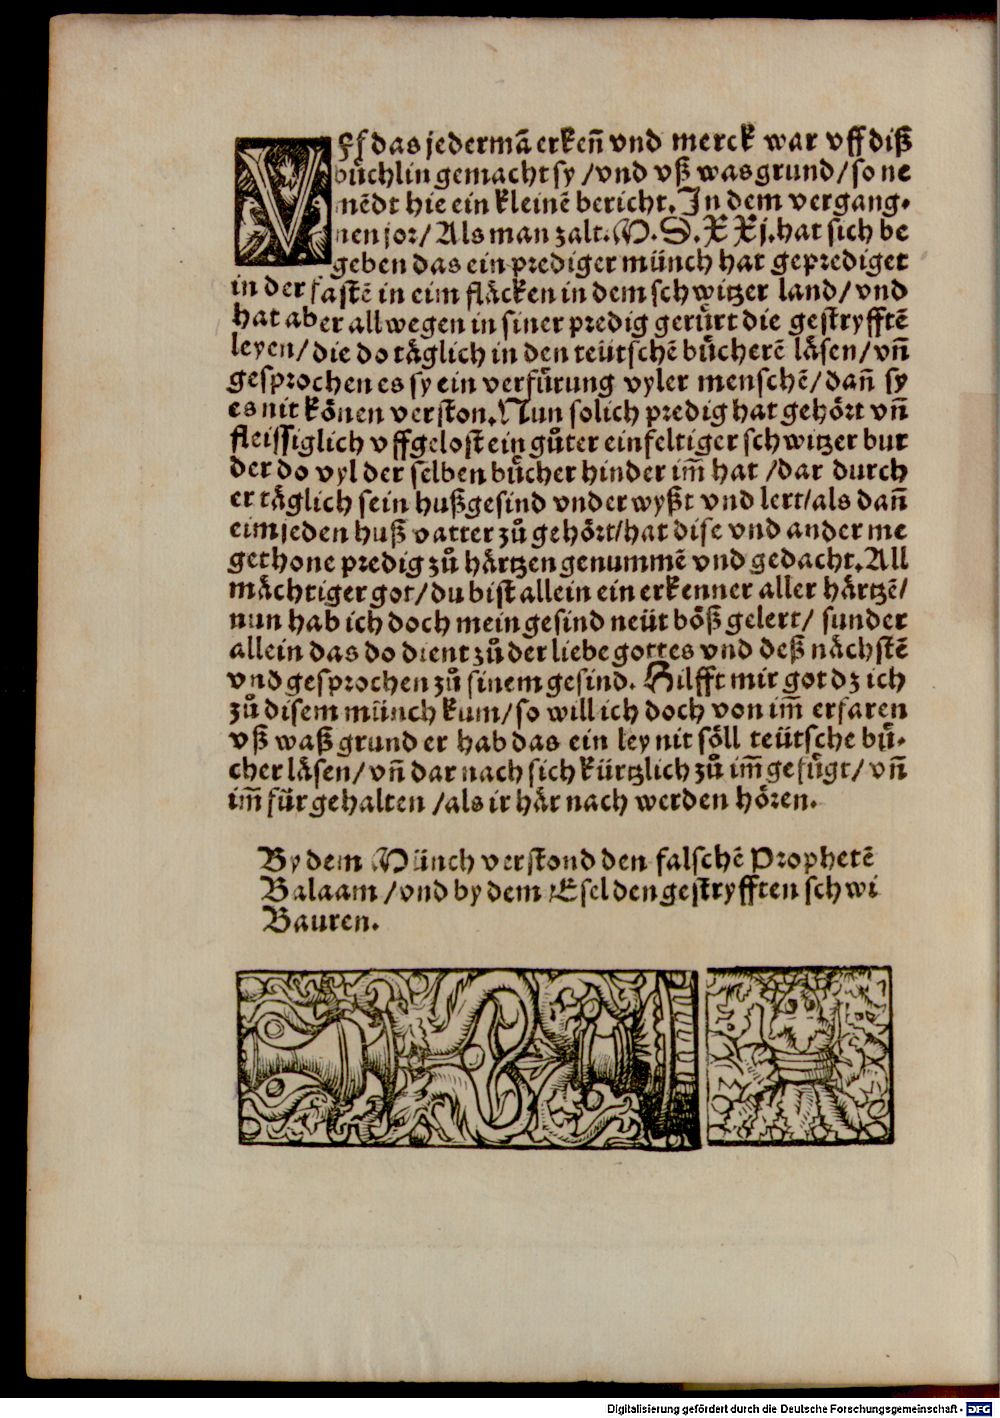 VFf das jedermā erkeñ vnd merck war vff diß
büchlin gemacht sy /vnd vß was grund/so ne
mēdt hie ein kleinē bericht. In dem vergang-
nen jor/ Als man zalt. M. D. XXj. hat sich be
geben das ein prediger münch hat geprediget
in der fastē in eim fläcken in dem schwitzer land/vnd
hat aber allwegen in siner predig gerürt die gestryfftē
leyen/die do täglich in den teütschē bücherē läsen/vñ
gesprochen es sy ein verfürung vyler menschē/dañ sy
es nit könen verston. Nun solich predig hat gehört vñ
fleissiglich vffgelost ein gůter einfeltiger schwitzer bur
der do vyl der selben bücher hinder im̄ hat /dar durch
er täglich sein hußgesind vnderwyßt vnd lert/als dañ
eim jeden huß vatter zů gehört/hat dise vnd ander me
gethone predig zů härtzen genummē vnd gedacht. All
mächtiger got/du bist allein ein erkenner aller härtzē/
nun hab ich doch mein gesind neüt böß gelert/ sunder
allein das do dient zů der liebe gottes vnd deß nächstē
vnd gesprochen zů sinem gesind. Hilfft mir got dz ich
zů disem münch kum/so will ich doch von im̄ erfaren
vß waß grund er hab das ein ley nit söll teütsche bü-
cher läsen/vñ dar nach sich kürtzlich zů im̄ gefügt/vñ
im̄ für gehalten /als ir här nach werden hören.
By dem Münch verstond den falschē Prophetē
Balaam /vnd by dem Esel den gestryfften schwi
Bauren.
Digitalisierung gefördert durch die Deutsche Forschungsgemeinschaft - DFG